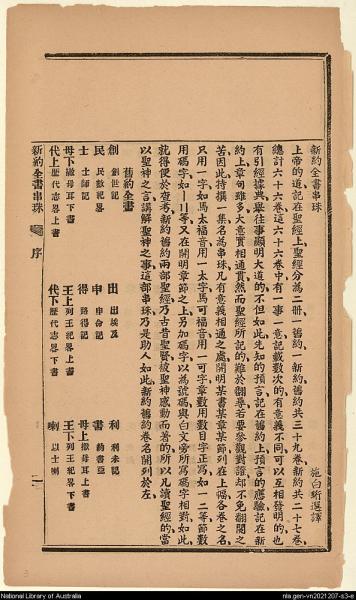 新約全書串珠
施白珩選譯
上帝的道記在聖經上聖經分為二冊一舊約一新約舊約共三十九卷新約共二十七卷
總計六十六卷這六十六卷中有一事一意記載數次的有意義不同可以互相發明的也
有引經據典舉往事顯明大道的不但如此先知的預言記在舊約上預言的應驗記在新
約上章句雖多大意實相通貫然而聖經所記的難於翻尋若要參觀對證却不免翻閱之
苦因此特撰一集名為串珠凡有意義相通之處開明某書某章某節列在上幅各卷之名
只用一字如馬太福音用一太字馬可福音用一可字章數用數目字正寫如一二等節數
用碼字如〡〢等又在開明章節之上另加碼字以為號碼與白文旁所寫碼字相對如此
就得便於查考新約舊約兩部聖經乃古昔聖賢被聖神感動而著的所以凡讀聖經的當
以聖神之言講解聖神之事這部串珠乃是助人如此新約舊約卷名開列於左
舊約全書
創 創世記 出 出埃及 利 利未記
民 民數紀畧 申 申命記 書 約書亞
士 士師記 得 路得記 母上 撒母耳上書
母下 撒母耳下書 王上 列王紀畧上書 王下 列王紀畧下書
代上 歷代志畧上書 代下 歷代志畧下書 喇 以士喇
新約全書串珠 序 一
National Library of Australia
nla.gen-vn2021207-s3-e